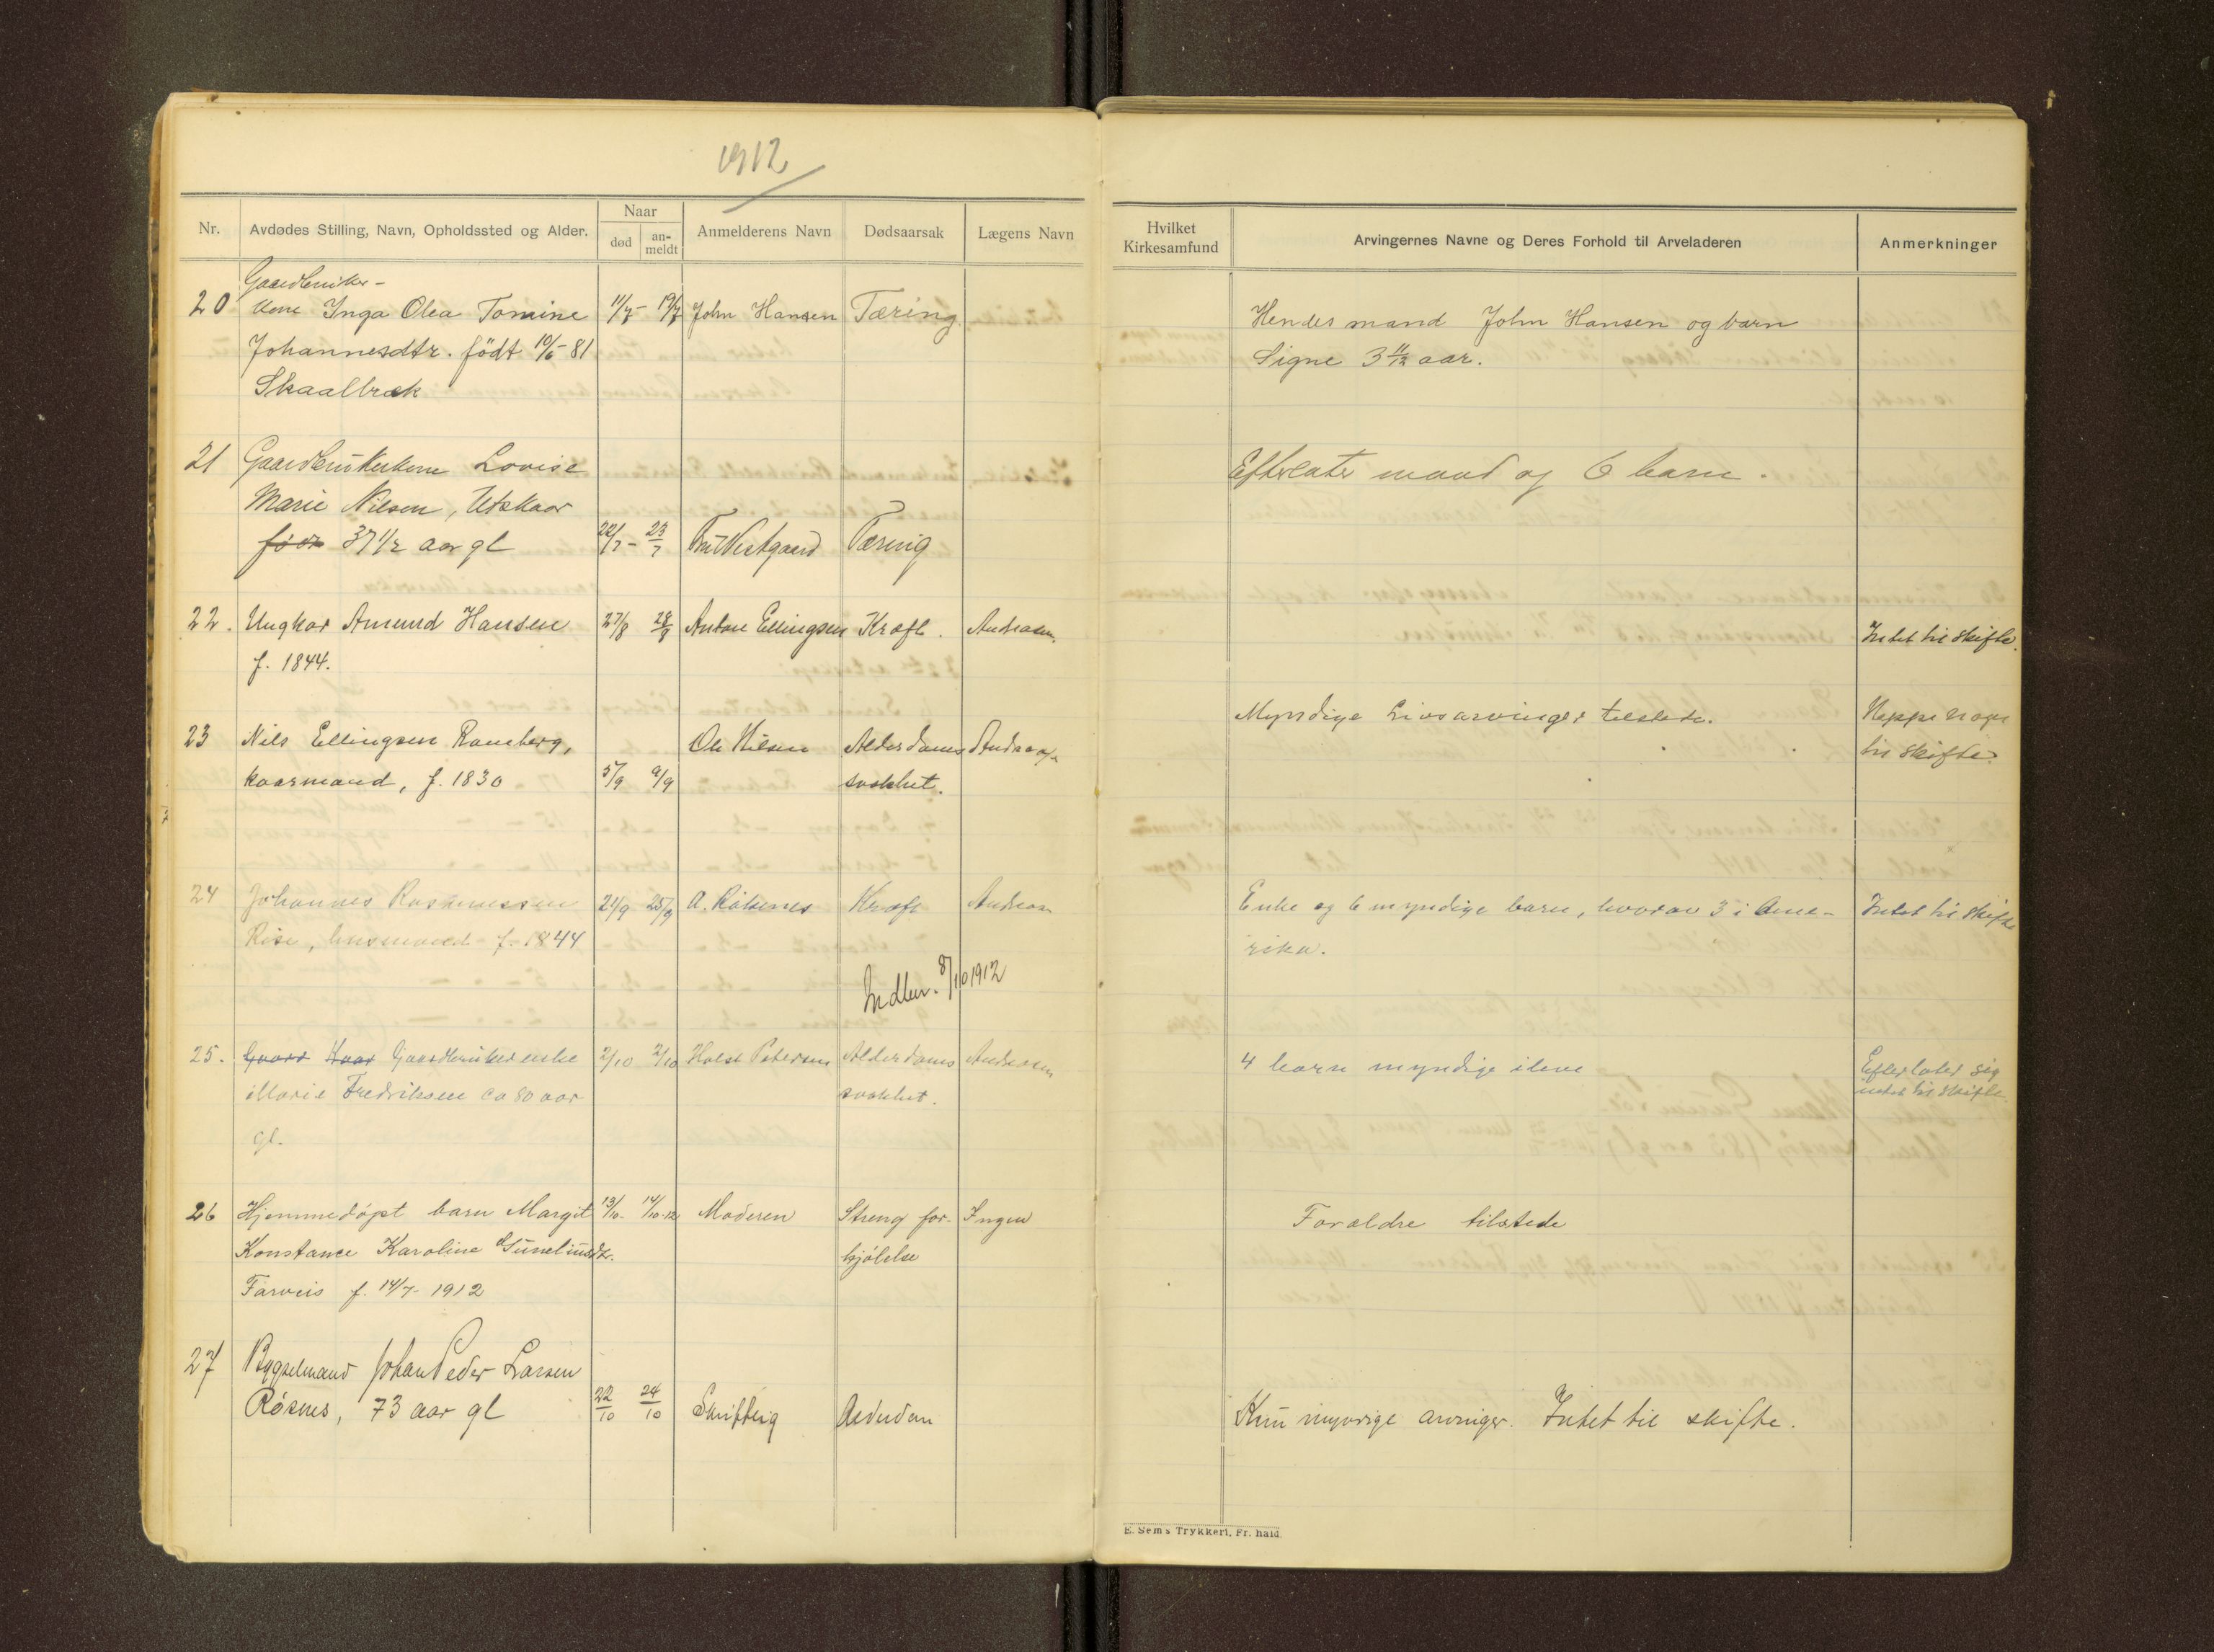 1912
Nr.
Avdødes Stilling, Navn, Opholdssted og Alder.
Naar
død
an-
meldt
Anmelderens Navn
Dødsaarsak
Lægens Navn
Hvilket
Kirkesamfund
Arvingernes Navne og Deres Forhold til Arveladeren
Anmerkninger
Gaardbruker-
20 kone Inga Olea Tomine 11/7 - 19/7 John Hansen Tæring Hendes mand John Hansen og barn
Johannesdtr. født 10/6 - 81 Signe 3 11/12 aar.
Skaalbræk
21 Gaardbrukerkone Lovise Efterlater mand og 6 barn.
Marie Nilsen, Utskaar
37 1/2 aar gl 22/7 - 23/7 Tæring
22. Ungkar Amund Hansen 27/8 28/8 Anton Ellingsen Kræft. Andreasen Intet til skifte.
f. 1844.
23 Nils Ellingsen Ramberg, Ole Nilsen Alderdoms Myndige Livsarvinger tilstede. Neppe noge
kaarmand, f. 1830 5/9 9/9 svakhet. til skifte.
24 Johannes Rasmussen 21/9 25/9 A. Råsnes Kræft Andreasen Enke og 6 myndige barn, hvorav 3 i Ame- Intet til skifte
Rise, husmand f. 1844 rika.
Indlev. 8/10 1912
25. Gaard Kaar Gaardbrukerenke 2/10 2/10 Holst Petersen Alderdoms Andreasen 4 barn myndige ilive Efterlater sig
Marie Fredriksen ca 80 aar svakhet. intet til skifte
gl.
26 Hjemmedøpt barn Margit 13/10 - 14/10-12 Moderen Streng for- Ingen Forældre tilstede
Konstance Karoline kjølelse
Farveis f. 14/7 - 1912
27 Bygselmand Johan Peder Larsen
Røsnes, 73 aar gl 22/10 24/10 Skriftlig Alderdom Kun myndige arvinger. Intet til skifte.
E. Sem's Trykkeri, Fr. hald.